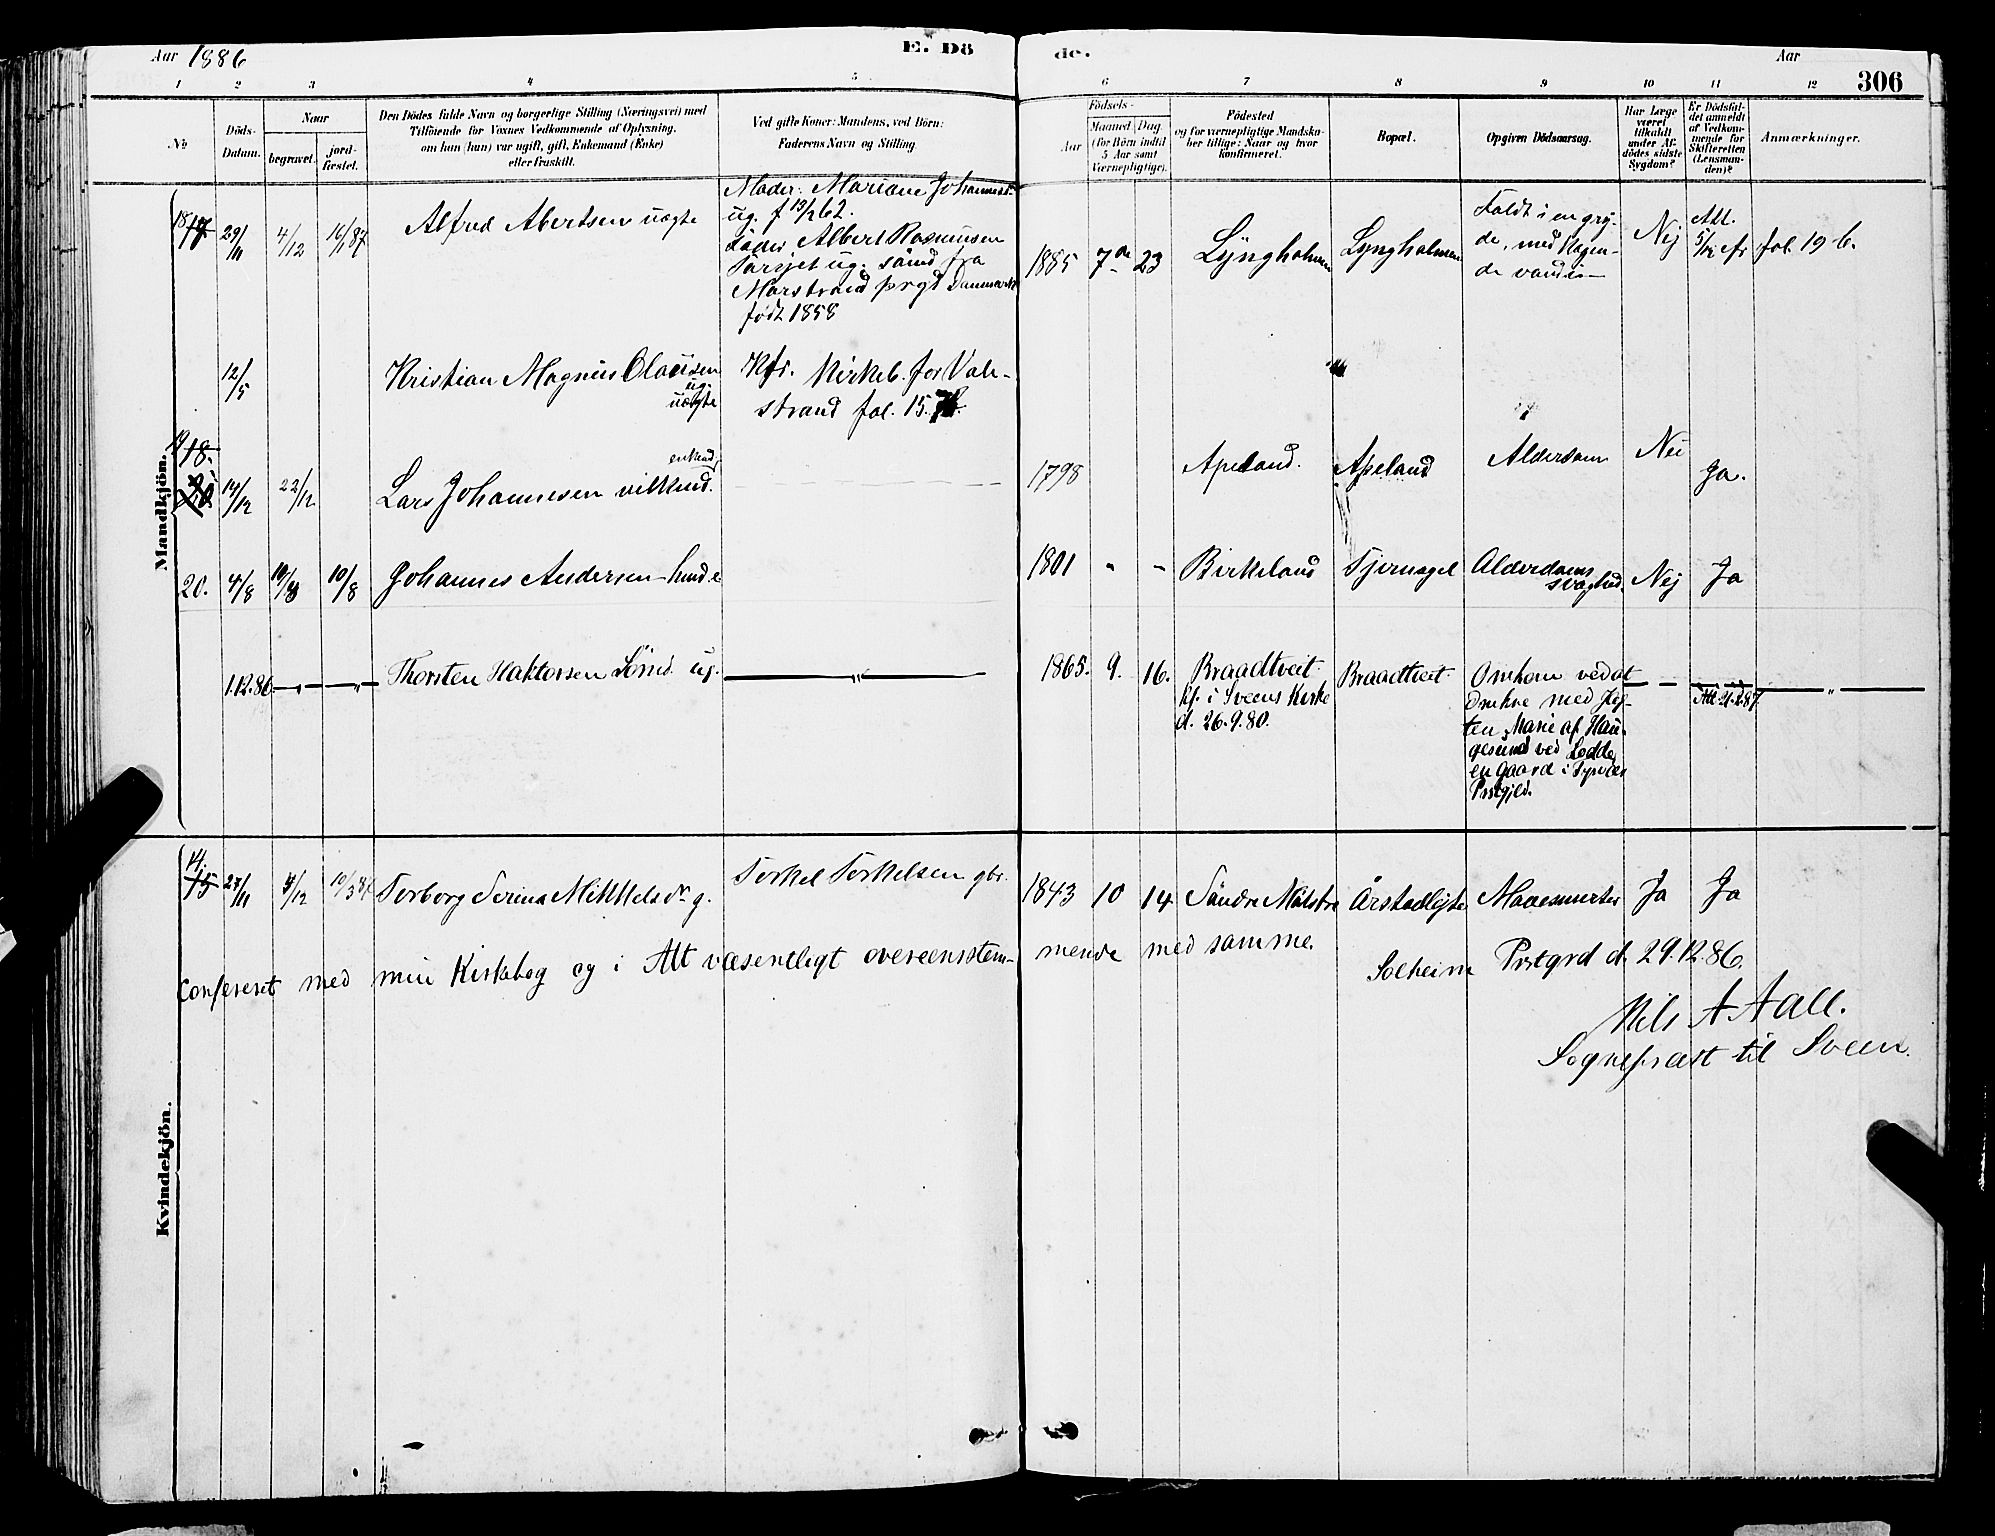 Aar 1886
E. Dö
de.
Aar
306
1 2 3 4 5 6 7 8 9 10 11 12
No
Döds-
Datum.
Naar
begravet.
jord-
fæstet.
Den Dödes fulde Navn og borgerlige Stilling (Næringsvei) med
Tilföiende for Voxnes Vedkommende af Oplysning,
om han (hun) var ugift, gift, Enkemand (Enke)
eller fraskilt.
Ved gifte Koner: Mandens, ved Börn:
Faderens Navn og Stilling.
Födsels-
Aar
Maaned
Dag
(for Börn indtil
5 Aar samt
Værnepligtige).
Födested
og for værnepligtige Mandska-
ber tillige: Naar og hvor
konfirmeret.
Bopæl.
Opgiven Dödsaarsag.
Har Læge
været
tilkaldt
under Af-
dödes sidste
Sygdom?
Er Dödsfal-
det anmeldt
af Vedkom-
mende for
Skifteretten
(Lensman-
den)?
Anmærkninger.
Mandkjön.
18 17 29/11 4/12 16/1 87 Alfred Abertsen uægte
Moder: Mariane Johannesd.
ug. f 19/2 62.
Fader Albert Rasmusen
ug. sømd fra
Marstrand prgd Danmark
født 1858
1885 7 23 Lyngholmen Lyngholmen
Faldt i en gry-
de, med kogen-
de vand i
Nej
Att.
5/12 cfr fol. 19 b.
12/5 Kristian Magnus Olausen
ug.
uægte
Kfr. Kirkeb. for Vale-
strand fol. 15.
19 18.
20 14/12 22/12 Lars Johannesen vilkmd.
enkmd.
1798 Apeland. Apeland Alderdom Nei Ja.
20. 4/8 10/8 Johannes Andersen
1801 " - Birkeland Tjernagel Alderdoms
svaghed. Nej Ja
1.12.86 - " - " - Thorsten Haktorsen Sömd. ug. - " -
1865. 9. 16. Braadtveit
kf. i Sveens Kirke
d. 26.9.80.
Braadtveit.
Omkom ved at
drukne med Jag-
ten Marie af Hau-
gesund ved Lodde
en Gaard i Tysvær
Prstgjeld.
- - Att. 21.2.87. "
Kvindekjön.
14.
15 27/11 4/12 10/3 87 Torborg Serina Mikkelsdr g.
Torkel Torkelsen gbr.
1843 10 14 Søndre Årstadlejte Mavesmerter Ja Ja
Confereret med min Kirkebog og i Alt væsentligt overeensstem-
mende med samme.
Solheim Prstgrd d. 29.12.86.
Nils A Aall.
Sognepræst til Sveen.